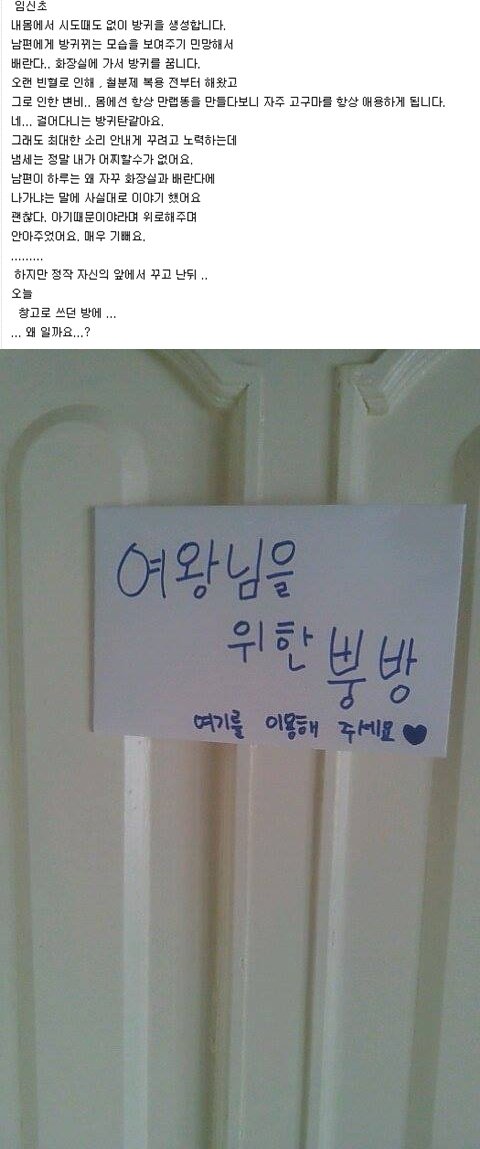 임신초
내몸에서 시도때도 없이 방귀을 생성합니다.
남편에게 방귀뀌는 모습을 보여주기 민망해서
배란다.. 화장실에 가서 방귀를 꿉니다.
오랜 빈혈로 인해 , 철분제 복용 전부터 해왔고
그로 인한 변비.. 몸에선 항상 만랩똥을 만들다보니 자주 고구마를 항상 애용하게 됩니다.
네... 걸어다니는 방귀탄같아요.
그래도 최대한 소리 안내게 꾸려고 노력하는데
냄세는 정말 내가 어찌할수가 없어요.
남편이 하루는 왜 자꾸 화장실과 배란다에
나가냐는 말에 사실대로 이야기 했어요
괜찮다. 아기때문이야라며 위로해주며
안아주었어요. 매우 기뻐요.
.........
하지만 정작 자신의 앞에서 꾸고 난뒤 ..
오늘
창고로 쓰던 방에 ...
... 왜 일까요...?
여왕님을
위한 뿡방
여기를 이용해 주세요♥